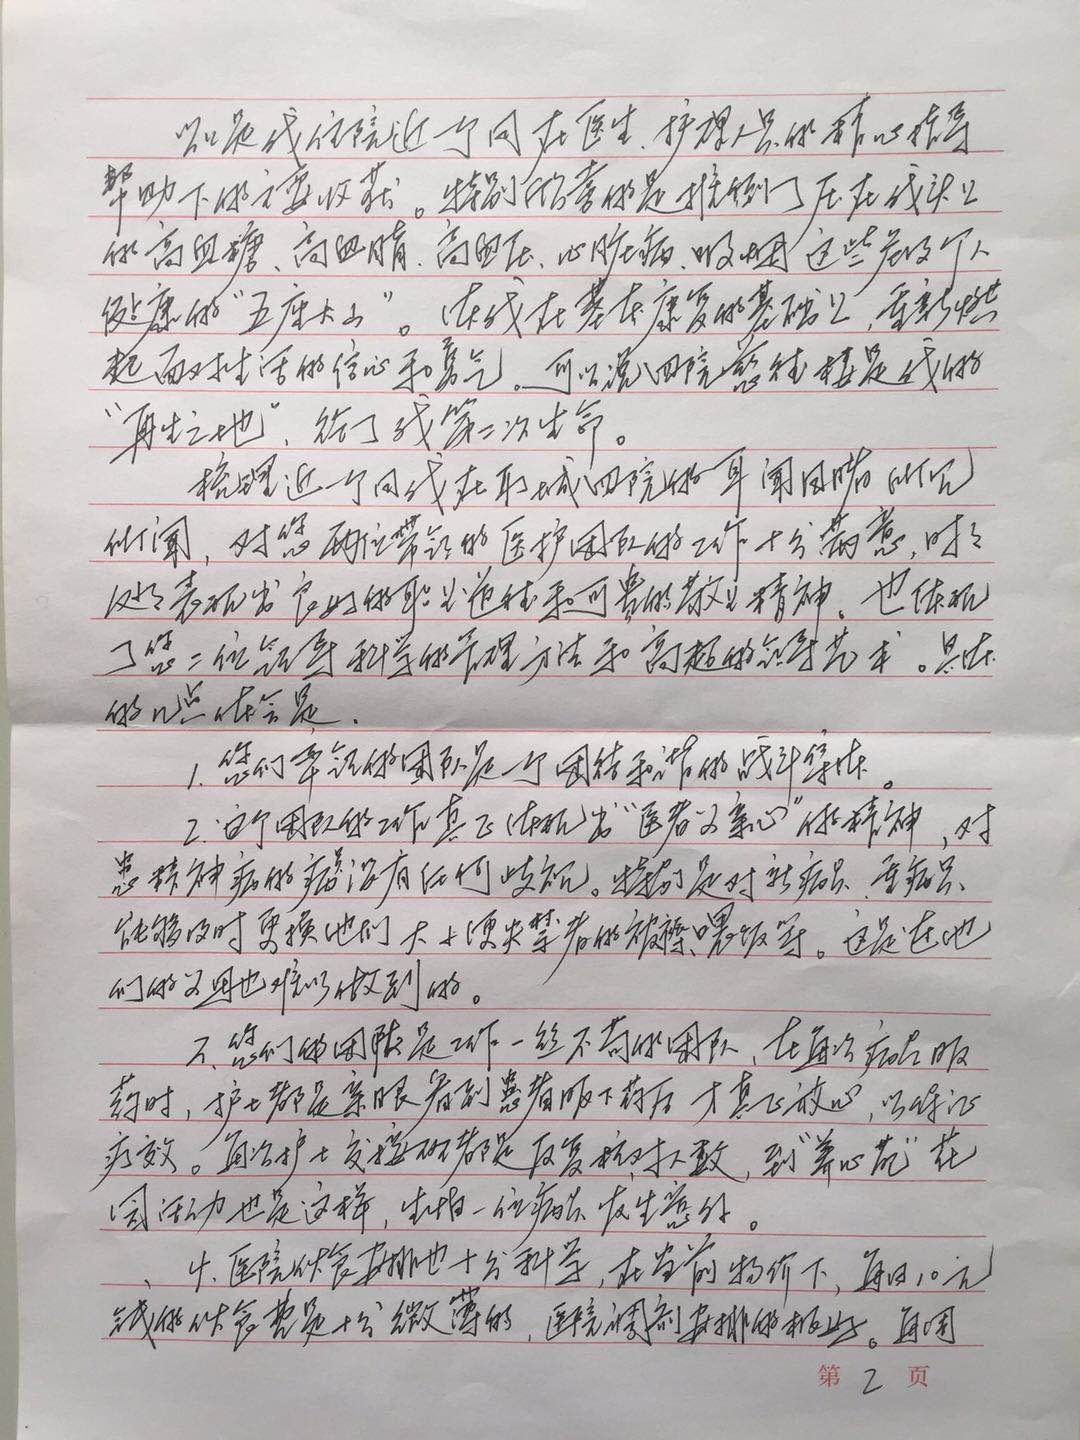 以上是我住院近一个月在医生、护理人员的精心指导
帮助下的主要收获。特别欣喜的是推倒了压在我头上
的高血糖、高血脂、高血压、心脏病、吸烟这些危及个人
健康的“五座大山”。使我在基本康复的基础上，重新燃
起面对生活的信心和勇气。可以说四院慈住楼是我的
“再生之地”、给了我第二次生命。
梳理近一个月我在聊城四院的耳闻目睹所见
所闻，对您两位带领的医护团队的工作十分满意，时时
处处表现出良好的职业道德和可贵的敬业精神。也体现
了您二位领导科学的管理方法和高超的领导艺术。具体
的几点体会是.
1.您们率领的团队是一个团结和谐的战斗集体。
2.这个团队的工作真正体现出“医者父亲心”的精神，对
患精神病的病员没有任何歧视。特别是对新病员、重病员、
能够及时更换他们大小便失禁者的被褥、喂饭等。这是在他
们的父母也难以做到的。
3.您们的团队是工作一丝不苟的团队，在每次病员服
药时，护士都是亲眼看到患者服下药后才真正放心，以保证
疗效。每次护士交接班都是反复核对人数，到“养心苑”花
园活动也是这样，生怕一位病员发生意外。
、4.医院伙食安排也十分科学，在当前物价下，每日10元
钱的伙食费是十分微薄的，医院调剂安排的极好。每周
第2页